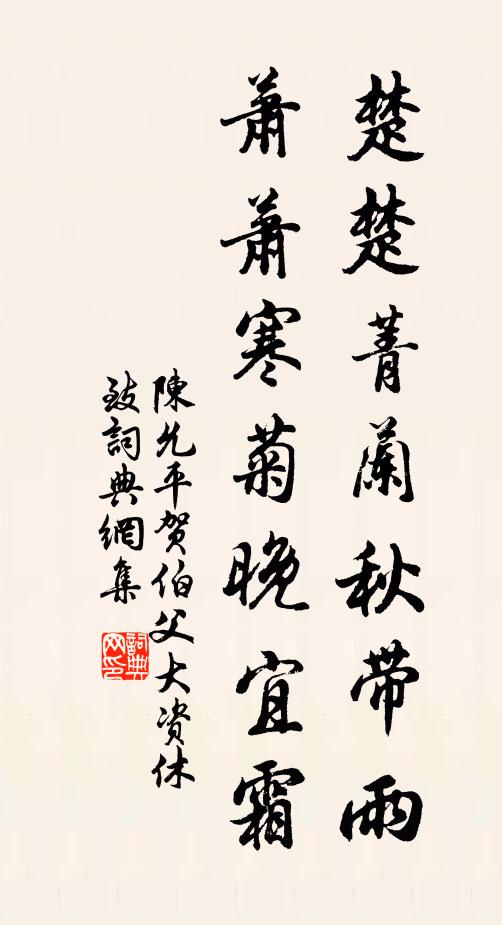 楚楚菁蘭秋帶雨
蕭蕭寒菊晚宜霜
陳允平賀伯父大資休
致詞典網集
詞典
网印